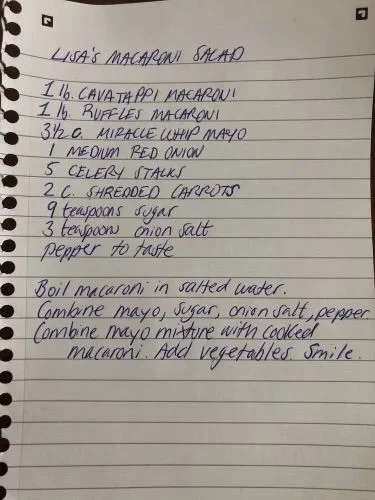 LISA'S MACARONI SALAD
1 lb. CAVATAPPI MACARONI
1 lb. RUFFLES MACARONI
3 1/2 c. MIRACLE WHIP MAYO
1 MEDIUM RED ONION
5 CELERY STALKS
2 C. SHREDDED CARROTS
9 teaspoons sugar
3 teaspoons onion salt
pepper to taste
Boil macaroni in salted water.
Combine mayo, sugar, onion salt, pepper.
Combine mayo mixture with cooked
macaroni. Add vegetables. Smile.